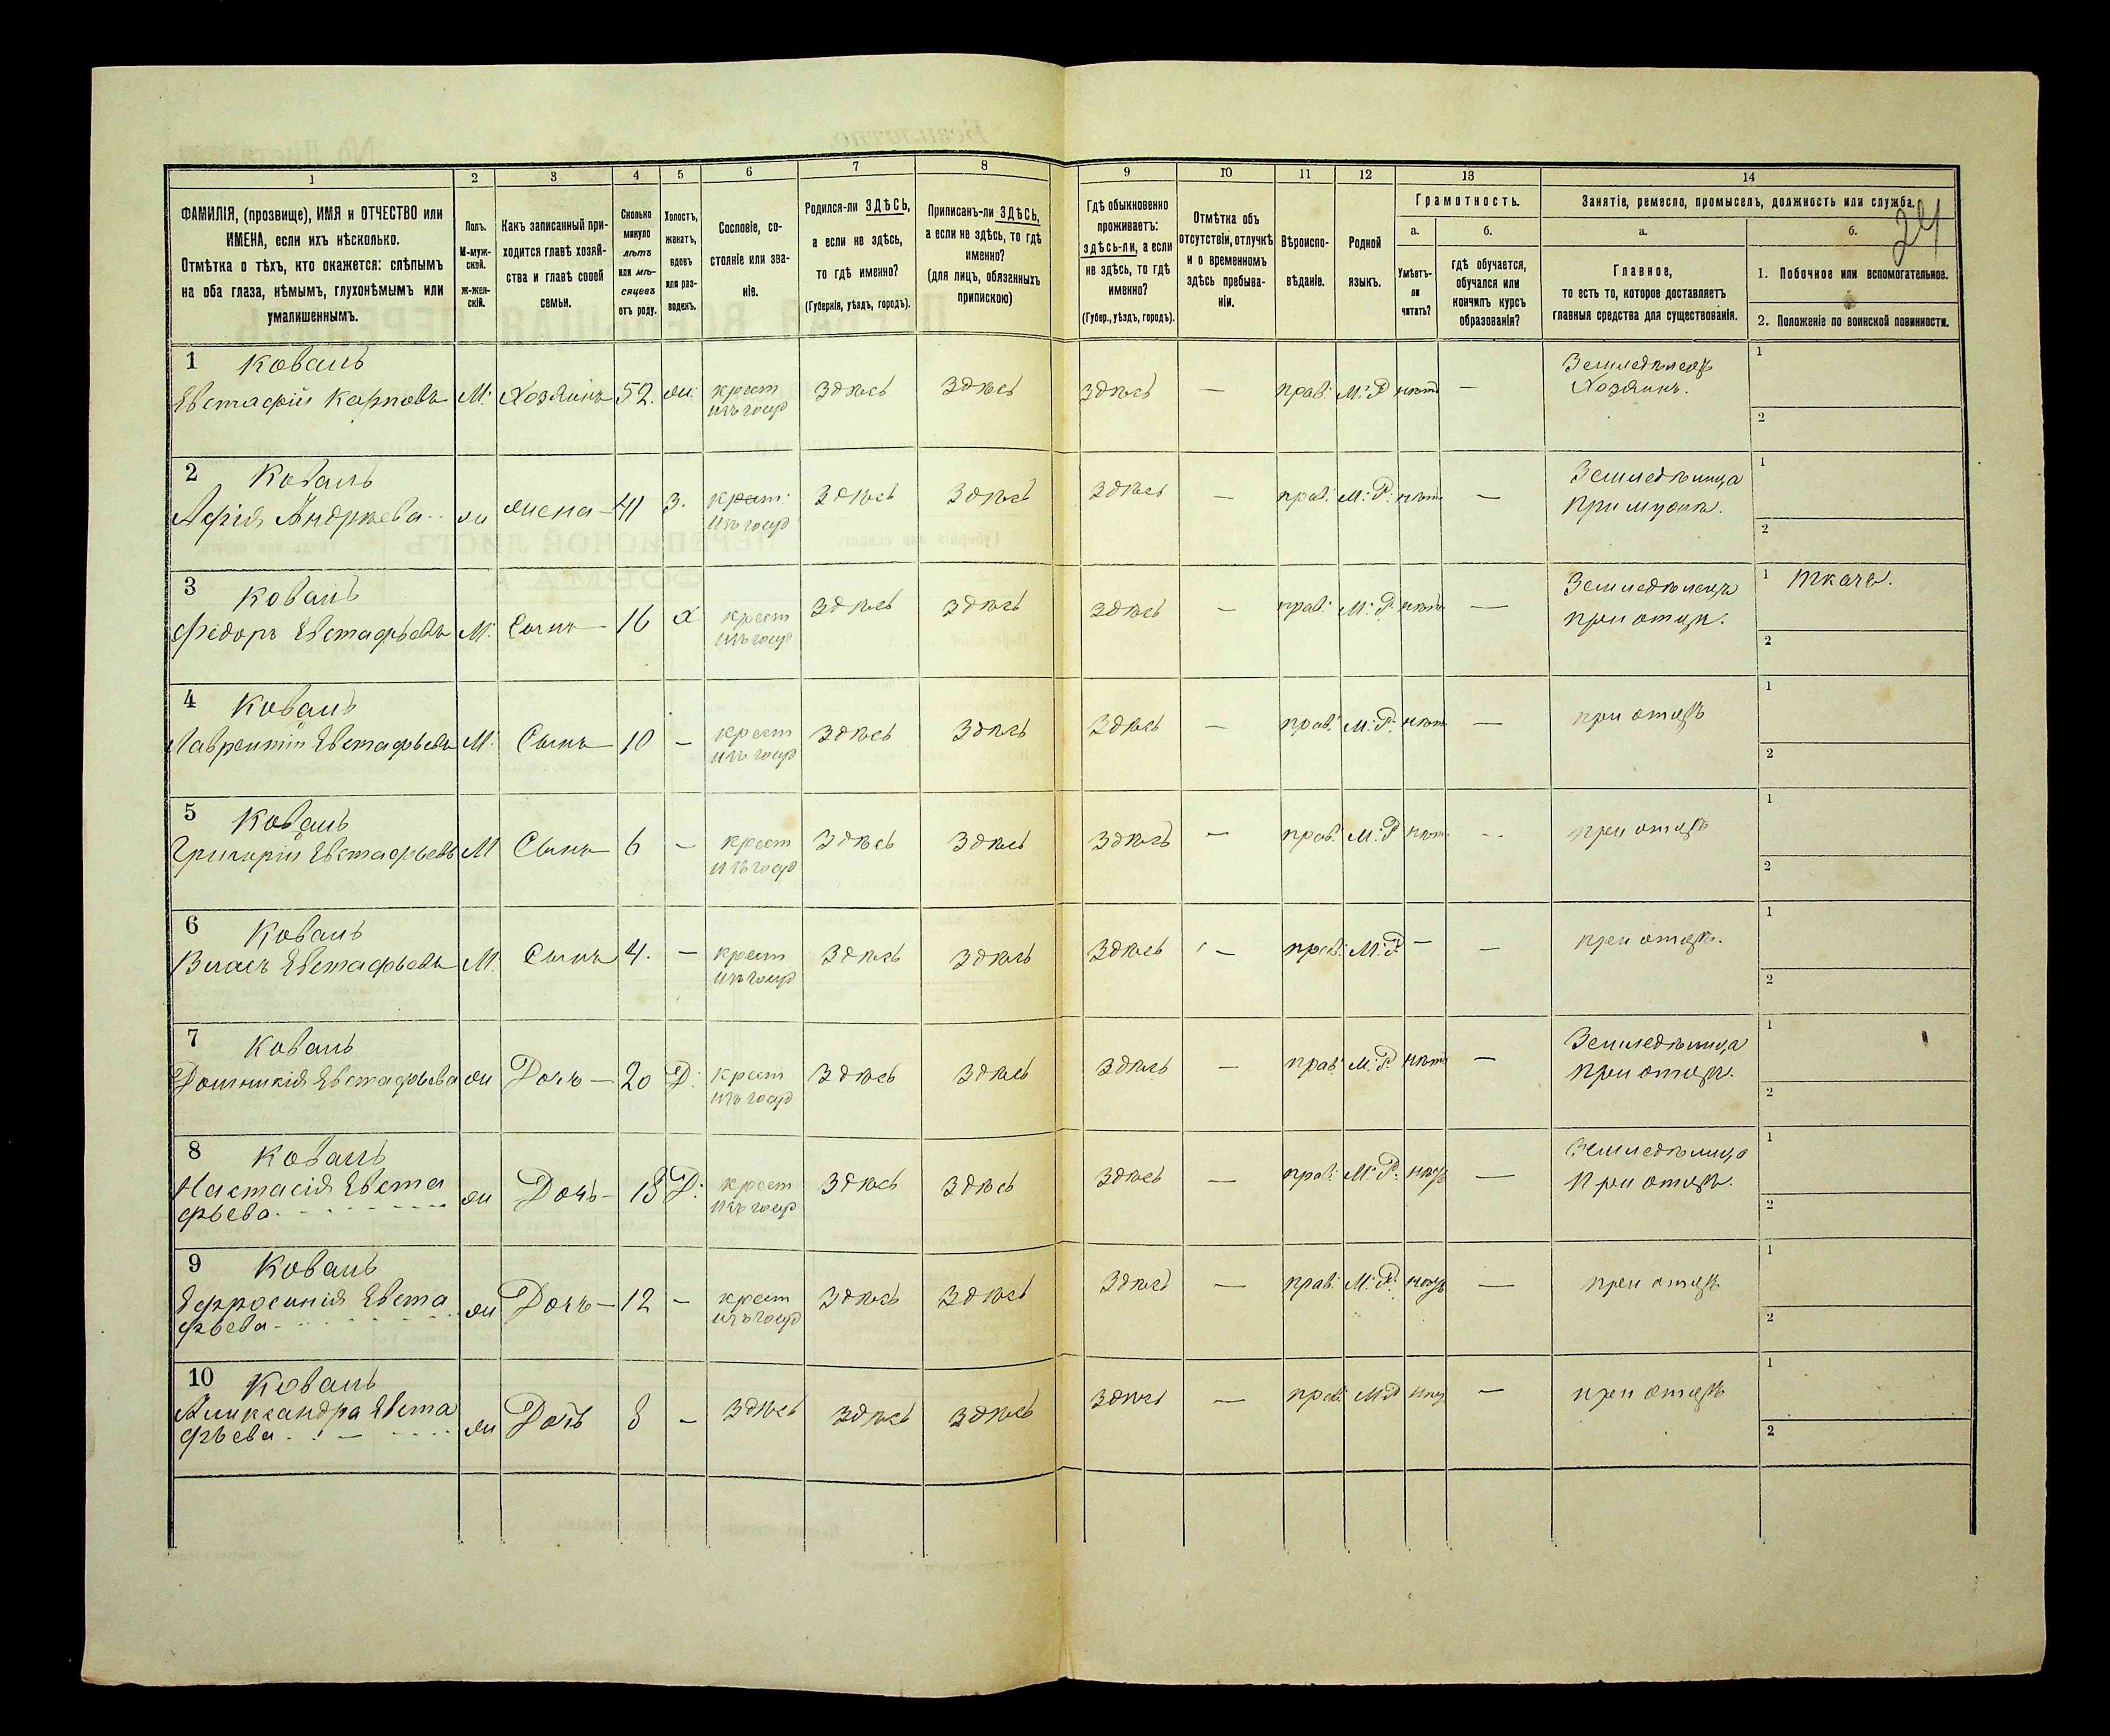 24
1 2 3 4 5 6 7 8 9 10 11 12 13 14
ФАМИЛІЯ, (прозвище), ИМЯ и ОТЧЕСТВО или
ИМЕНА, если ихъ нѣсколько.
Отмѣтка о тѣхъ, кто окажется: слѣпымъ
на оба глаза, нѣмымъ, глухонѣмымъ или
умалишеннымъ.
Полъ.
М-муж-
ской.
Ж-жен-
скій.
Какъ записанный при-
ходится главѣ хозяй-
ства и главѣ своей
семьи.
Сколько
минуло
лѣтъ
или мѣ-
сяцевъ
отъ роду.
Холостъ,
женатъ,
вдовъ
или раз-
веденъ.
Сословіе, со-
стояніе или зва-
ніе.
Родился-ли ЗДѢСЬ,
а если не здѣсь,
то гдѣ именно?
(Губернія, уѣздъ, городъ).
Приписанъ-ли ЗДѢСЬ,
а если не здѣсь, то гдѣ
именно?
(для лицъ, обязанныхъ
припискою)
Гдѣ обыкновенно
проживаетъ:
здѣсь-ли, а если
не здѣсь, то гдѣ
именно?
(Губер., уѣздъ, городъ).
Отмѣтка объ
отсутствіи, отлучкѣ
и о временномъ
здѣсь пребыва-
ніи.
Вѣроиспо-
вѣданіе.
Родной
языкъ.
Грамотность.
а.
Умѣетъ-
ли
читать?
б.
гдѣ обучается,
обучался или
кончилъ курсъ
образованія?
Занятіе, ремесло, промыселъ, должность или служба.
а.
Главное,
то есть то, которое доставляетъ
главныя средства для существованія.
б.
1. Побочное или вспомогательное.
2. Положеніе по воинской повинности.
1 Коваль
Евстафій Карповъ М. Хозяинъ 52. ж. крест изъ госуд здѣсь здѣсь здѣсь — прав. М. Р нѣтъ — Земледѣлецъ Хозяинъ. 1
2
2 Коваль
Агфія Андреева ж жена 41 З. крест изъ госуд здѣсь здѣсь здѣсь — прав. М. Р. нѣтъ — Земледѣлица при мужѣ. 1
2
3 Коваль
Федоръ Евстафьевъ М. Сынъ 16 х крест изъ госуд здѣсь здѣсь здѣсь — прав. М. Р нѣтъ — Земледѣлецъ при отцѣ. 1 Ткачъ.
2
4 Коваль
Лаврентій Евстафьевъ М. Сынъ 10 — крест изъ госуд здѣсь здѣсь здѣсь — прав. М. Р. нѣтъ — при отцѣ 1
2
5 Коваль
Григорій Евстафьевъ М Сынъ 6 — крест изъ госуд здѣсь здѣсь здѣсь — прав. М. Р нѣт -- при отцѣ 1
2
6 Коваль
Власъ Евстафьевъ М. Сынъ 4. — крест изъ госуд здѣсь здѣсь здѣсь — прав. М. Р — — при отцѣ. 1
2
7 Коваль
Домникія Евстафьева ж Дочь 20 Д. крест изъ госуд здѣсь здѣсь здѣсь — прав. М. Р. нѣтъ — Земледѣлица при отцѣ. 1
2
8 Коваль
Настасія Евста
фьева ж Дочь 18 Д. крест изъ госуд здѣсь здѣсь здѣсь — прав. М. Р. нѣтъ — Земледѣлица При отцѣ. 1
2
9 Коваль
Ефросинія Евста
фьева ж Дочь 12 — крест изъ госуд здѣсь здѣсь здѣсь — прав. М. Р. нѣтъ — при отцѣ 1
2
10 Коваль
Александра Евста
фьева ж Дочь 8 — здѣсь здѣсь здѣсь здѣсь — прав. М Р нѣтъ — при отцѣ 1
2